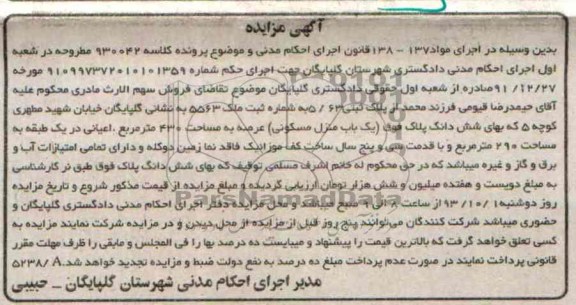 آگهی مزایده
بدین وسیله در اجرای مواد۱۳۷ – ۱۳۸قانون اجرای احکام مدنی و موضوع پرونده کلاسه ۹۳۰۰۴۲ مطروحه در شعبه
اول اجرای احکام مدنی دادگستری شهرستان گلپایگان جهت اجرای حکم شماره ۹۱۰۹۹۷۳۷۲۰۱۰۱۳۵۹ مورخه
۹۱/۱۲/۲۷صادره از شعبه اول حقوقی دادگستری گلپایگان موضوع تقاضای فروش سهم الارث مادری محکوم علیه
آقای حیدرضا قیومی فرزند محمد از پلاک ثبتی۶۳ /۵به شماره ثبت ملک ۵۵۶۳ به نشانی گلپایگان خیابان شهید مطهری
کوچه ۵ که بهای شش دانگ پلاک فوق (یک باب منزل مسکونی) عرصه به مساحت ۴۳۰ مترمربع ،اعیانی در یک طبقه به
مساحت ۲۹۰ مترمربع و با قدمت سی و پنج سال ساخت کف موزائیک فاقد نما زمین دوکله و دارای تمامی امتیازات آب و
برق و گاز و غیره میباشد که در حق محکوم له خانم اشرف مسلمی توقیف که بهای شش دانگ پلاک فوق طبق نر کارشناسی
به مبلغ دویست و هفتده میلیون و شش هزار تومان ارزیابی گردیده و مبلغ مزایده از قیمت مذکور شروع و تاریخ مزایده
روز دوشنبه۹۳/۱۰/۱ از ساعت ۹ الی ۱۰ صبح میباشد محل مزایده دفتر اجرای احکام مدنی دادگستری گلپایگان و
حضوری میباشد شرکت کنندگان می‌توانند پنج روز قبل از مزایده از محل دیدن و در مزایده شرکت نمایند مزایده به
کسی تعلق خواهد گرفت که بالاترین قیمت را پیشنهاد و میبایست ده درصد بها را فی المجلس و مابقی را ظرف مهلت مقرر
قانونی پرداخت نمایند در صورت عدم پرداخت مبلغ ده درصد به نفع دولت ضبط و مزایده تجدید خواهد شد.۵۲۳۸/A
مدیر اجرای احکام مدنی شهرستان گلپایگان _ حبیبی